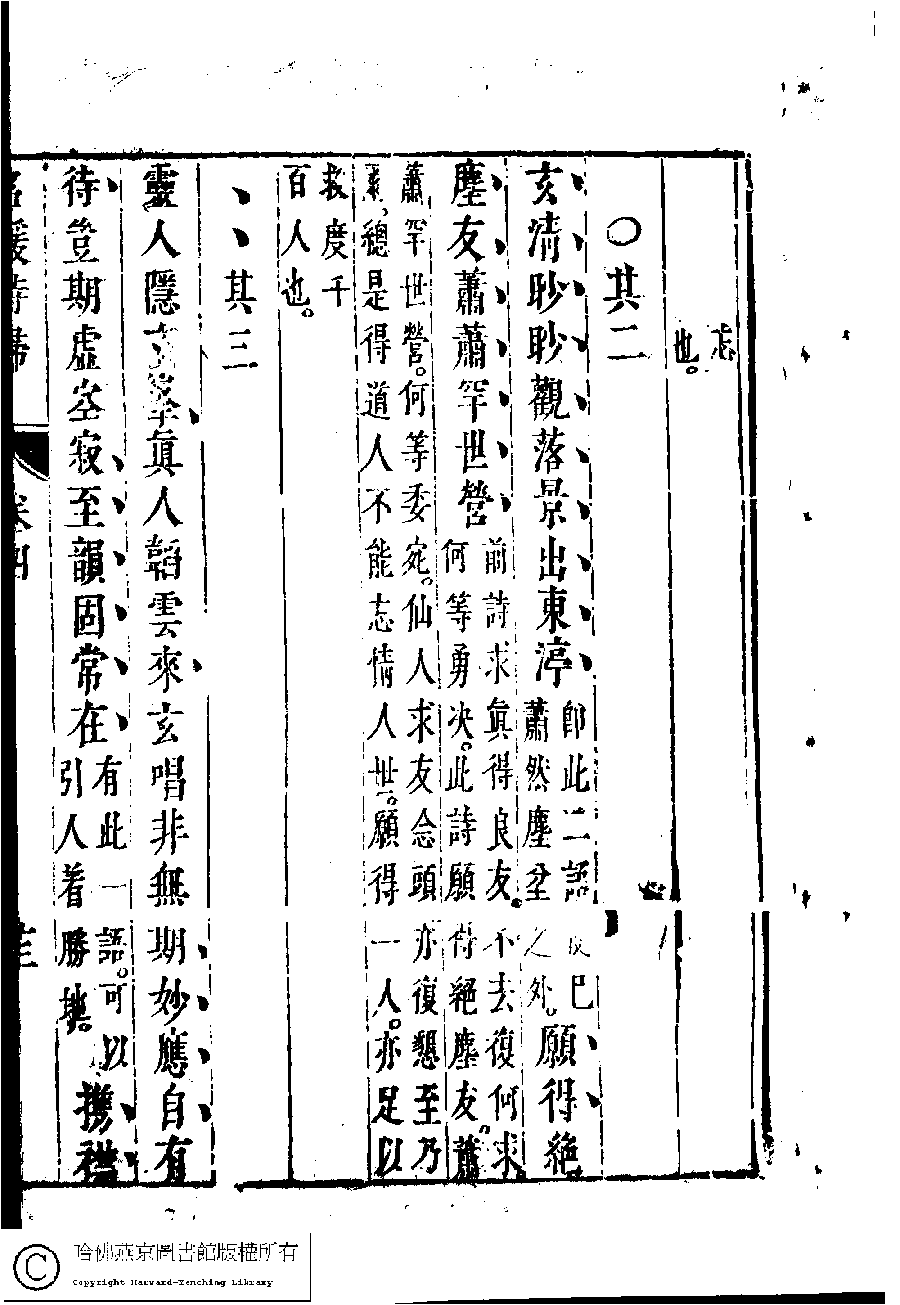 忘
也。
○其二
玄清眇眇觀落景出東渟
卽此二語
已
蕭然塵坌之外。
願得絶
塵友蕭蕭罕世營
前詩求眞得良友。不去復何求。
何等勇决。此詩願得絶塵友。蕭
蕭罕世營。何等委宛。仙人求友念頭亦復懇至乃
爾。總是得道人不能忘情人世。願得一人。亦足以
救度千
百人也。
其三
靈人隱玄峯眞人韜雲來玄唱非無期妙應自有
待豈期虛空寂至韻固常在
有此一語。可以
引人着勝地。
攜襟
名媛詩歸
卷四
哈佛燕京圖書館版權所有
Copyright Harvard-Yenching Library